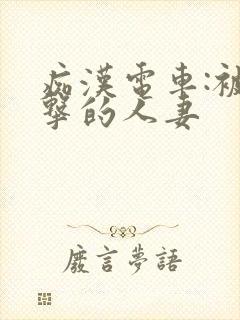 痴漢電車:被
擊的人妻
廢言夢語